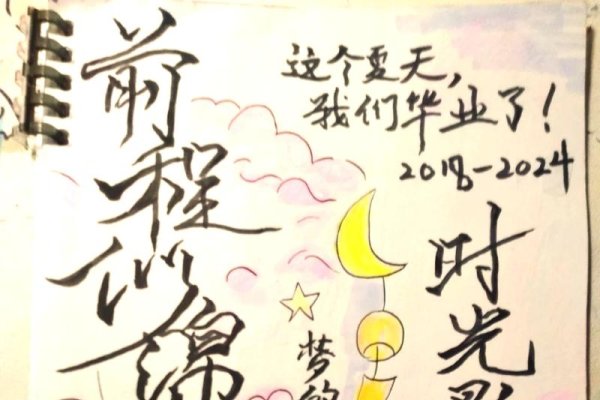 前程似锦
这个夏天，
我们毕业了！
2018-2024
时光
梦的